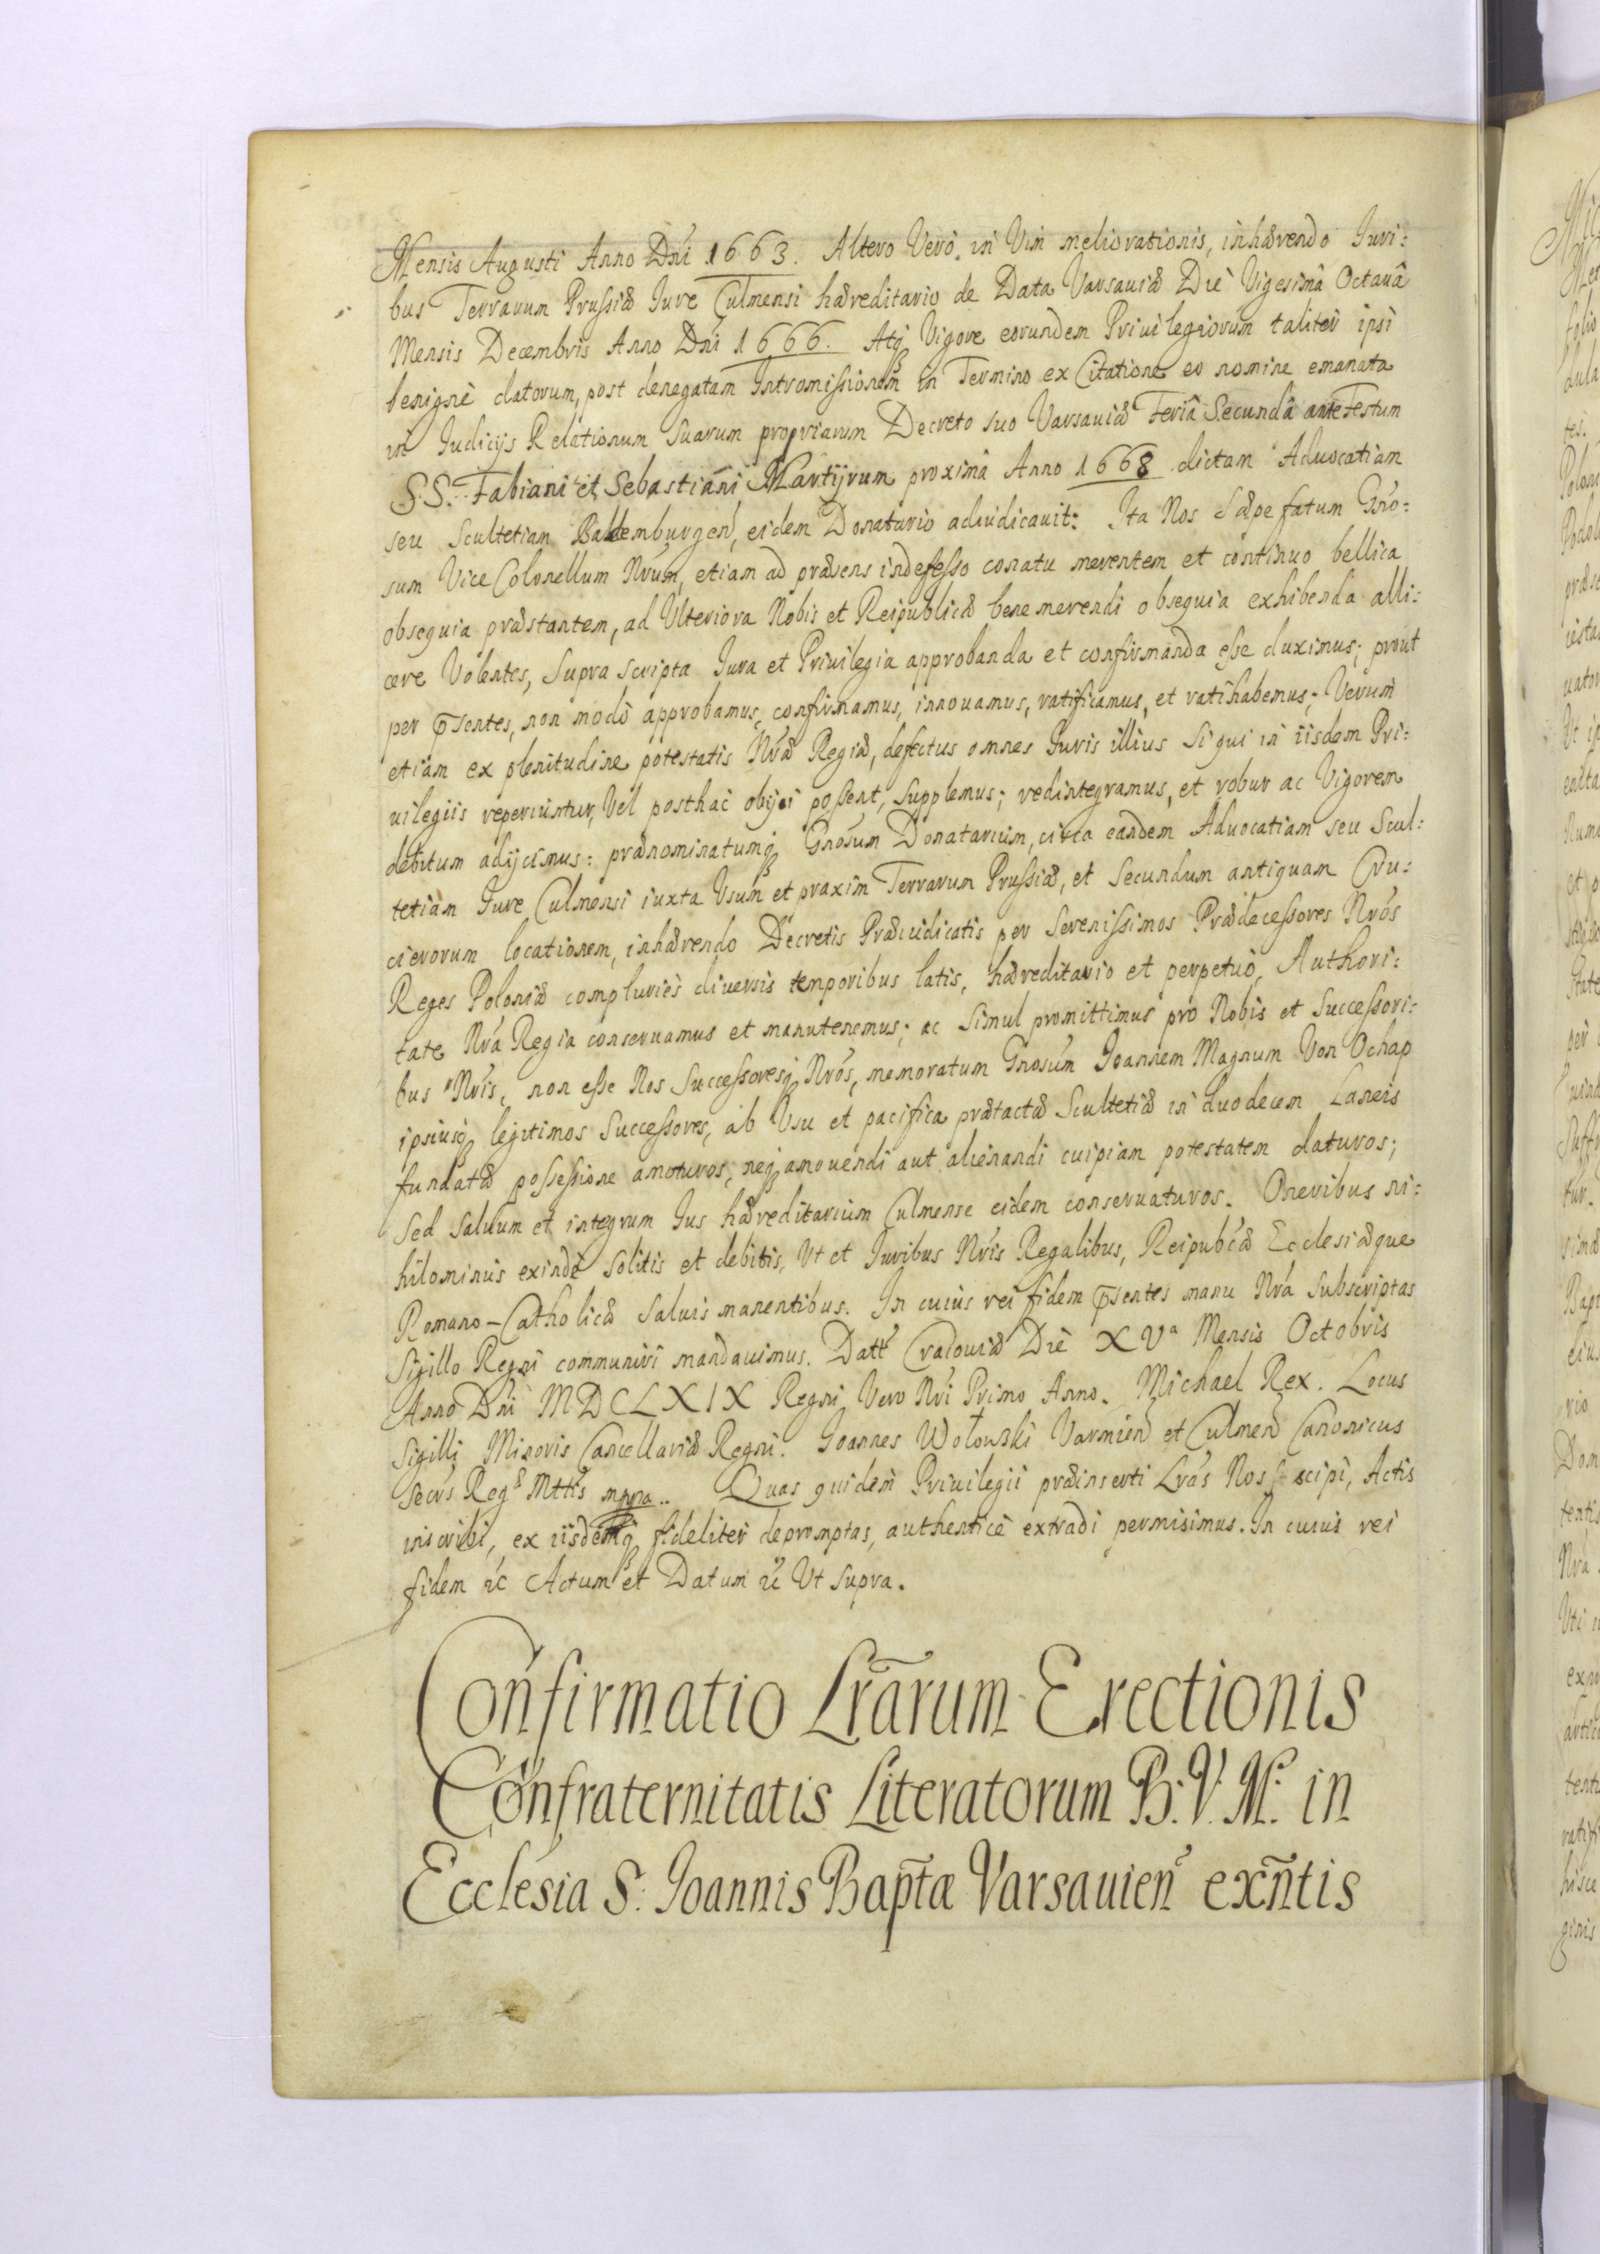 Mensis Augusti Anno Dni 1663. Altero Vero, in Vim meliorationis, inhærendo Juri:
bus Terrarum Prussiæ Jure Culmensi hæreditario de Data Varsauiæ Die Vigesimâ Octauâ
Mensis Decembris Anno Dni 1666. Atq₃ Vigore eorundem Priuilegiorum taliter ipsi
benignè datorum, post denegatam Intromissionem in Termino ex Citatione eo nomine emanata
in Judicijs Relationum Suarum propriarum Decreto suo Varsauiæ Feriâ Secundâ ante Festum
S.S. Fabiani et Sebastiani Martyrum proximâ Anno 1668 dictam Aduocatiam
seu Scultetiam Baldemburgen, eidem Donatario adiudicauit: Ita Nos Sæpe fatum Gnro:
sum Vice Colonellum Nrum, etiam ad præsens indefesso conatu merentem et continuo bellica
obsequia præstantem, ad Ulteriora Nobis et Reipublicæ bene merendi obsequia exhibenda alli:
cere Volentes, Supra scripta Jura et Priuilegia approbanda et confirmanda esse duximus; prout
per p̄sentes, non modò approbamus, confirmamus, innouamus, ratificamus, et ratihabemus; Verum
etiam ex plenitudine potestatis Nræ Regiæ, defectus omnes Juris illius Si qui in iisdem Pri:
uilegiis reperiuntur, Vel posthac obijci possent, supplemus; redintegramus, et robur ac Vigorem
debitum adijcimus: prænominatumq₃ Gnrosum Donatarium, circa eandem Aduocatiam seu Scul:
tetiam Jure Culmensi iuxta Usum et praxim Terrarum Prussiæ, et Secundum antiquam Cru:
cierorum locationem, inhærendo Decretis Præiudicatis per Serenissimos Prædecessores Nros
Reges Poloniæ compluriès diuersis temporibus latis, hæreditario et perpetuò, Authori:
tate Nrá Regia conseruamus et manutenemus; ac Simul promittimus pro Nobis et Successori:
bus Nris, non esse Nos Successoresq₃ Nros, memoratum Gnrosum Joannem Magnum Von Ochap
ipsiusq₃ legitimos Successores, ab Usu et pacifica prætactæ Scultetiæ in duodecem Laneis
fundatæ possessione amoturos, neq₃ amouendi aut alienandi cuipiam potestatem daturos;
Sed Saluum et integrum Jus hæreditarium Culmense eidem conseruaturos. Oneribus ni:
hilominus exinde Solitis et debitis, Ut et Juribus Nris Regalibus, Reipubcæ Ecclesiæque
Romano-Catholicæ Saluis manentibus. In cuius rei fidem p̄sentes manu Nra Subscriptas
Sigillo Regni communiri mandauimus. Datt Cracouiæ Die XVa Mensis Octobris
Anno Dni MDCLXIX Regni Vero Nri Primo Anno. Michael Rex. Locus
Sigilli Minoris Cancellariæ Regni. Joannes Wołowski Varmien et Culmen Canonicus
Secrs Regæ Mttis mpria.. Quas quidem Priuilegii præinserti Lras Nos scipi, Actis
inscribi, ex iisdemq₃ fideliter depromptas, authenticè extradi permisimus. In cuius rei
fidem &c Actum et Datum &c Ut Supra.
Confirmatio Lrarum Erectionis
Confraternitatis Literatorum B: V. M: in
Ecclesia S: Joannis Bapṫæ Varsauien exn̄tis